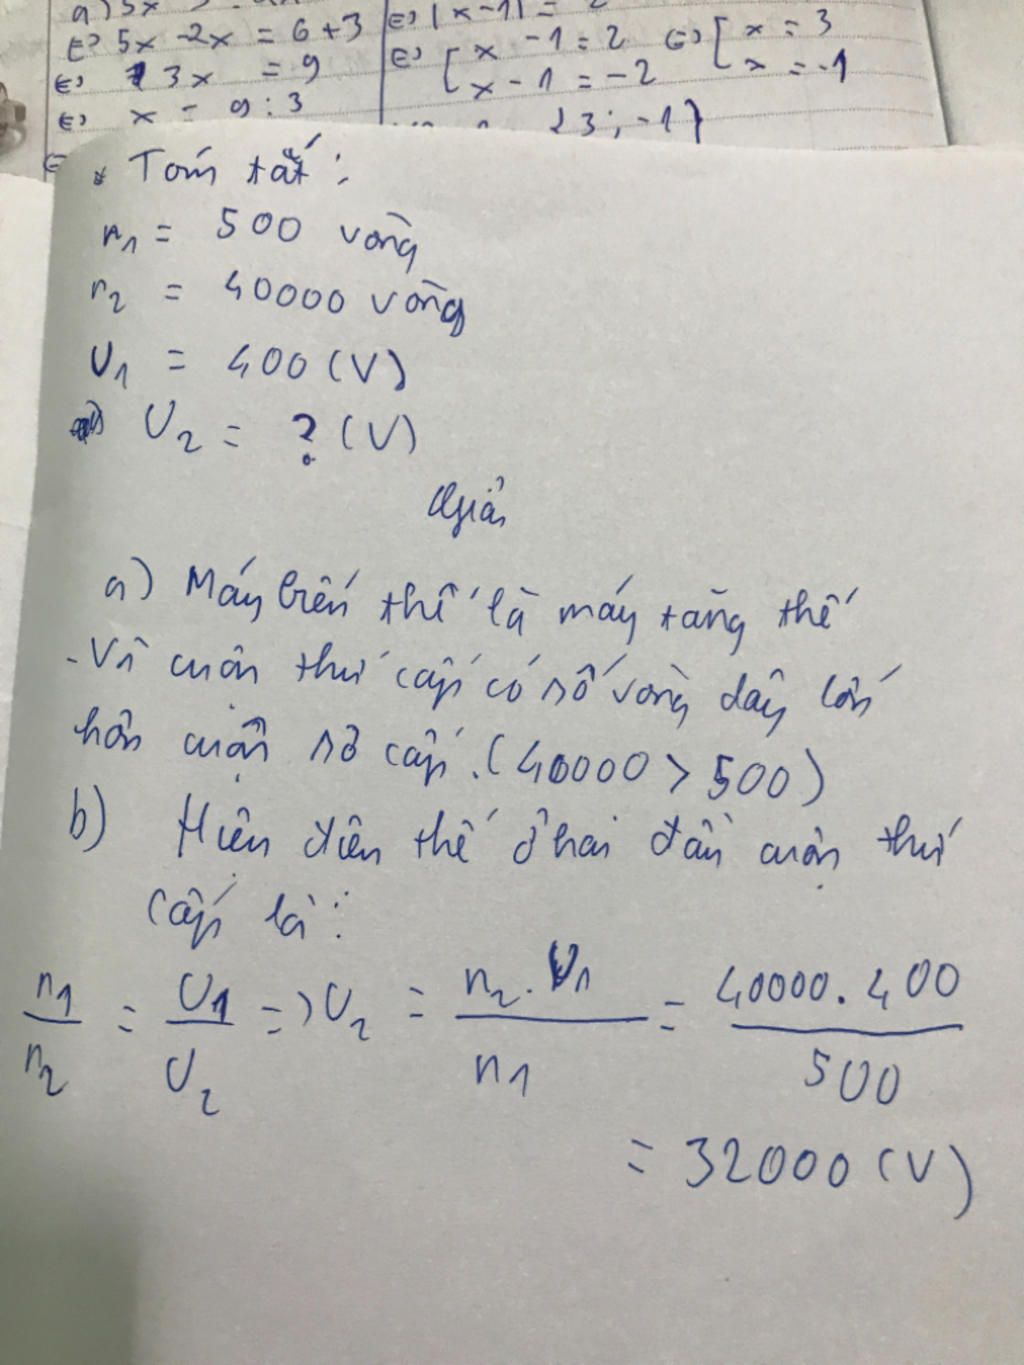 a) 5x
⇔ 5x - 2x = 6 + 3
⇔ 3x = 9
⇔ x = 9 : 3
⇔ |x-1| = 2
⇔ [ x - 1 = 2 ⇔ [ x = 3
x - 1 = -2 x = -1
{3; -1}
* Tóm tắt:
n₁ = 500 vòng
n₂ = 40000 vòng
U₁ = 400 (V)
U₂ = ? (V)
Giải
a) Máy biến thế là máy tăng thế
- Vì cuộn thứ cấp có số vòng dây lớn
hơn cuộn sơ cấp. (40000 > 500)
b) Hiệu điện thế ở hai đầu cuộn thứ
cấp là:
n₁/n₂ = U₁/U₂ => U₂ = n₂.U₁/n₁ = 40000.400/500
= 32000 (V)